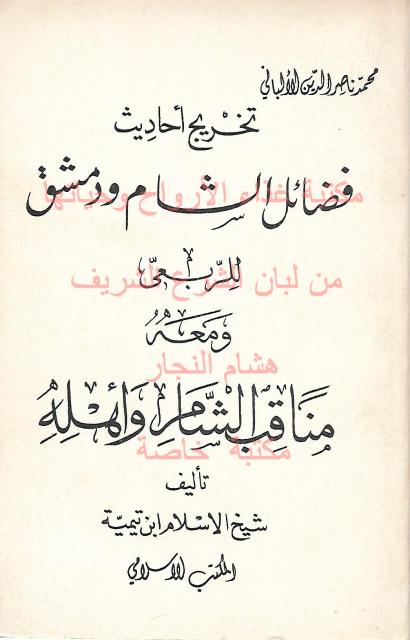 محمد ناصر الدين الألباني
تخريج أحاديث
فضائل الشام ودمشق
مكتبة غذاء الأرواح وحياتها
للربعي
من لبان الشرع الشريف
ومعه
هشام النجار
مناقب الشام وأهله
مكتبة خاصة
تأليف
شيخ الاسلام ابن تيمية
المكتب الاسلامي